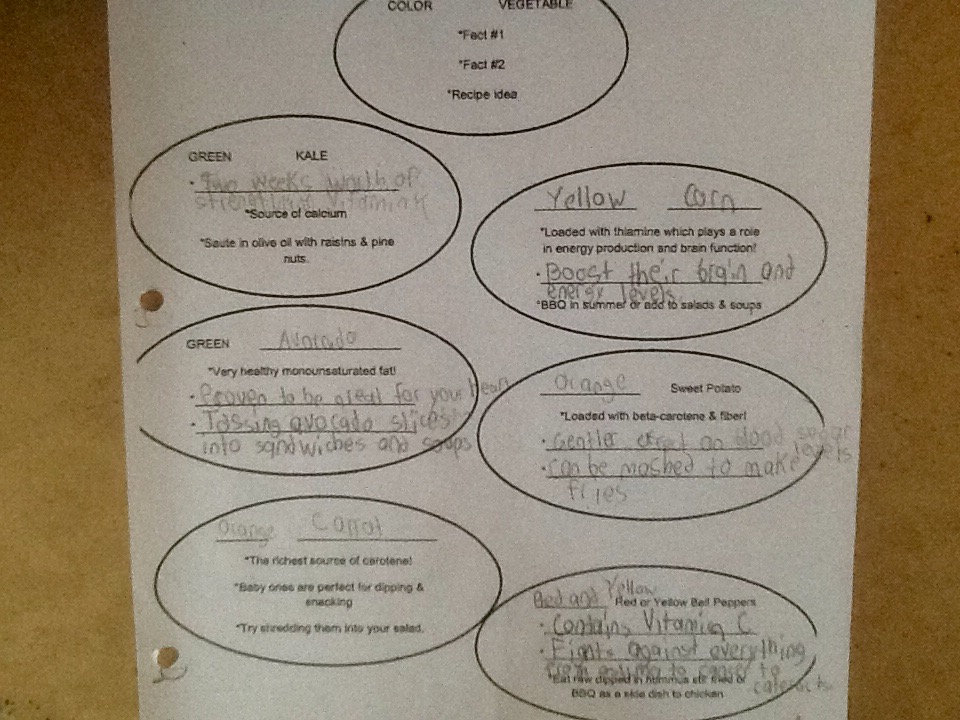 COLOR VEGETABLE
*Fact #1
*Fact #2
*Recipe idea
GREEN KALE
• Two weeks worth of
vitamin K
*Source of calcium
*Saute in olive oil with raisins & pine
nuts.
Yellow Corn
*Loaded with thiamine which plays a role
in energy production and brain function!
• Boost their brain and
energy levels
*BBQ in summer or add to salads & soups
GREEN Avocado
*Very healthy monounsaturated fat!
• Proven to be great for your heart
• Tossing avocado slices
into sandwiches and soups
Orange Sweet Potato
*Loaded with beta-carotene & fiber!
• Gentler effect on blood sugar
levels
• Can be mashed to make
fries
Orange Carrot
*The richest source of carotene!
*Baby ones are perfect for dipping &
snacking
*Try shredding them into your salad.
Red and Yellow
Red or Yellow Bell Peppers
• Contains Vitaming C
• Fights against everything
from to cancer to
cataracts
*Eat raw dipped in hummus stir fried or
BBQ as a side dish to chicken